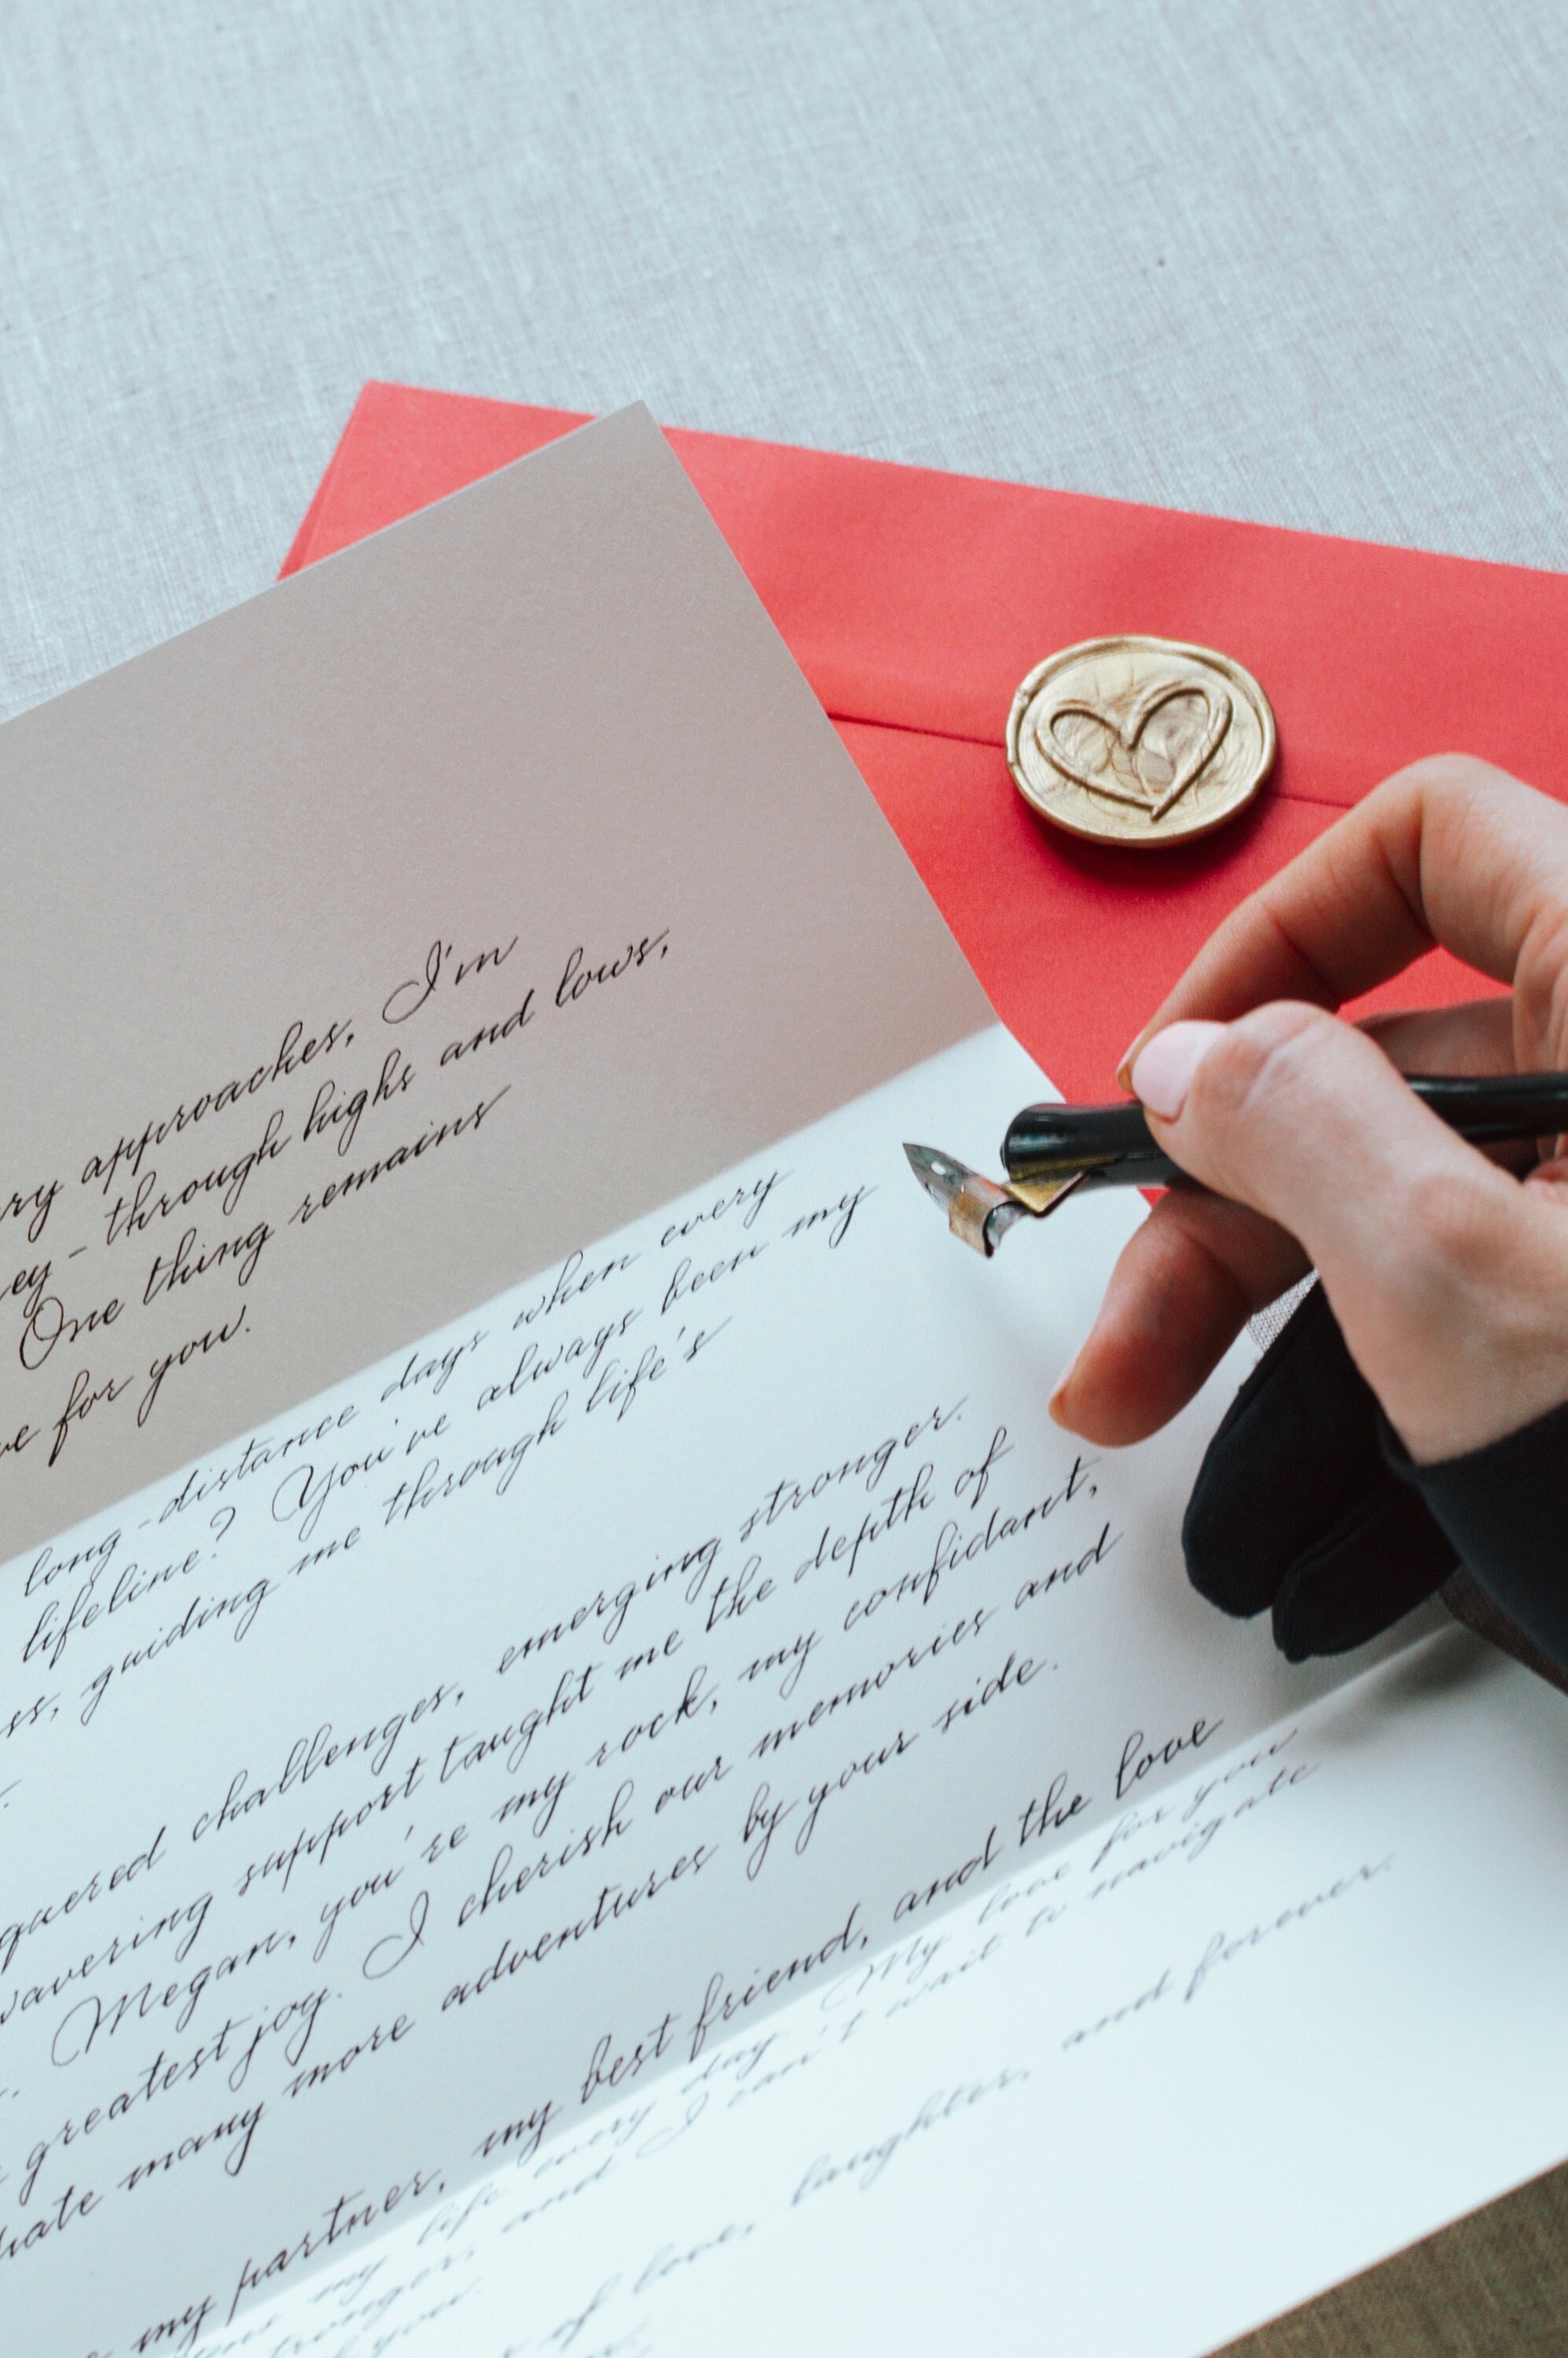 approaches, I'm
through highs and lows,
One thing remains
for you.
long-distance days when every
lifeline? You've always been my
guiding me through life's
challenges, emerging stronger.
support taught me the depth of
Megan, you're my rock, my confidant,
greatest joy. I cherish our memories and
many more adventures by your side.
my partner, my best friend, and the love
my life every day. My love for you
and I can't wait to navigate
you
of love, laughter, and forever.